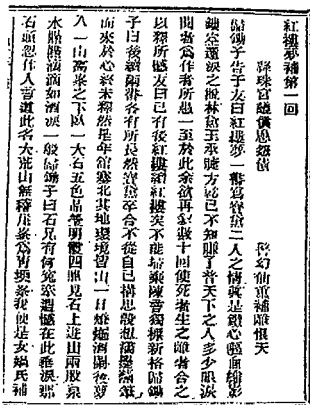 紅樓夢補第一回
珠宮償恩怨債　警幻仙重補離恨天
歸鋤子告予友曰紅樓夢一書寫寶黛二人之情眞是鏤心
鏤空還淚之說林黛玉承睫方乾已不知賺了普天下之人多少眼淚
閱者爲作者所愚一至於此余欲再敘數十回使死者生之離者合之
以釋所憾友曰已有後紅樓續紅樓矣不能歸陳言獨標新格歸鋤
子曰後續兩書各有所長然寶黛卒合不從自己構思設想
而來於心終未釋然是年館塞北其地環境皆山一日燈炧酒闌夜夢
入一山峯之下臥一大石五色晶瑩明徹四照見石上迸出兩股泉
水點點滴滴如洒淚一般歸鋤子曰石兄有何冤牽遺憾在此垂淚那
石頭忽作人言道此名大荒山無稽厓峯爲青埂峯我便是女媧氏補